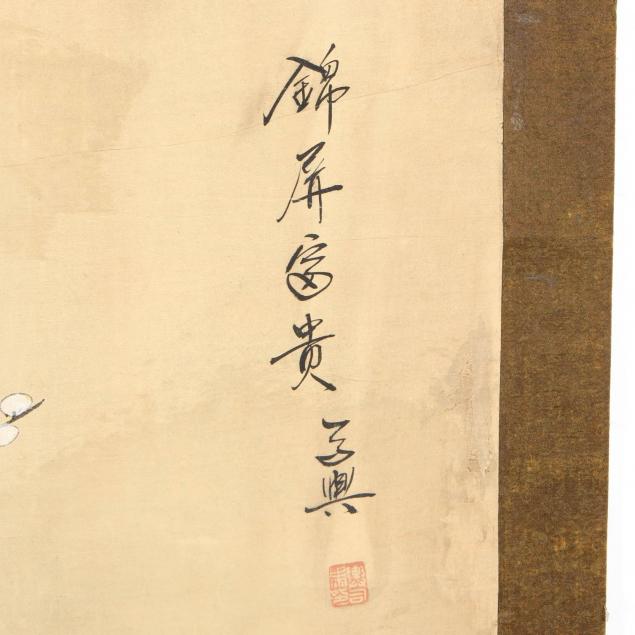 錦屏富貴
子興